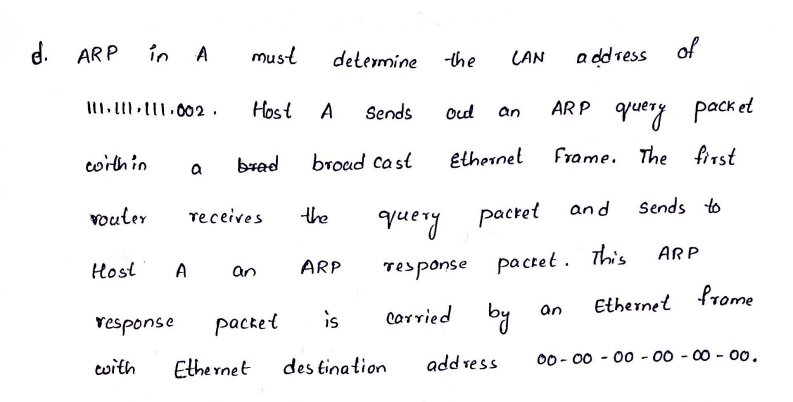 d. ARP in A must determine the LAN address of
111.111.111.002. Host A sends out an ARP query packet
within a brad broad cast Ethernet Frame. The first
router receives the query packet and sends to
Host A an ARP response packet. This ARP
response packet is carried by an Ethernet frame
with Ethernet destination address 00-00-00-00-00-00.